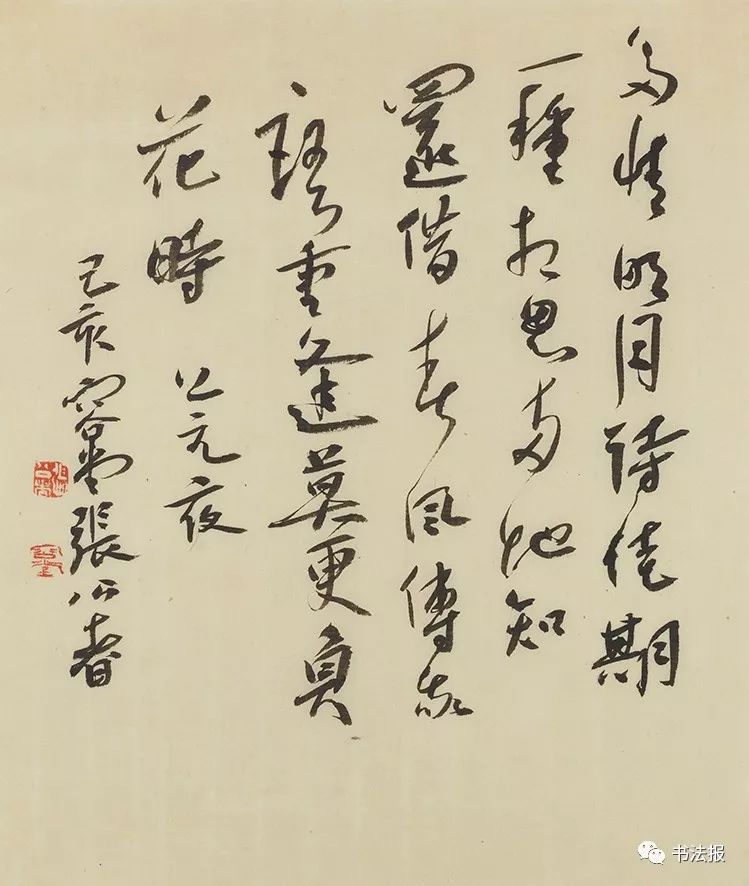 多情明月待佳期
一種相思兩地知
還借春風傳款
語重逢莫更負
花時 上元夜
己亥容堂張公者
书法报